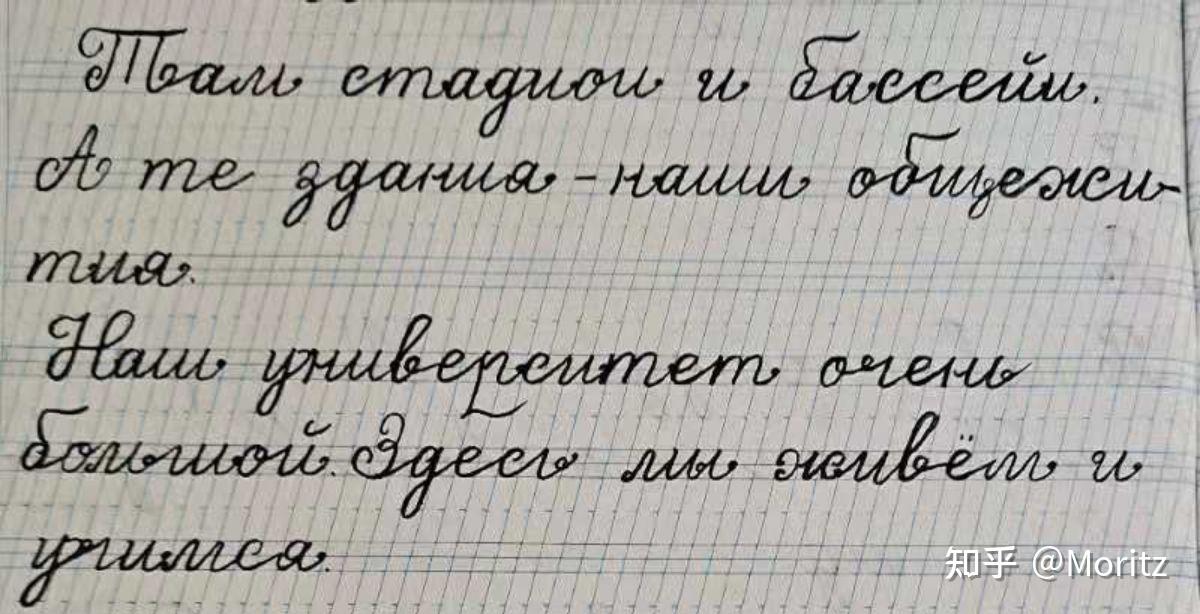 Там стадион и бассейн.
А те здания - наши общежи-
тия.
Наш университет очень
большой. Здесь мы живём и
учимся.
知乎 @Moritz